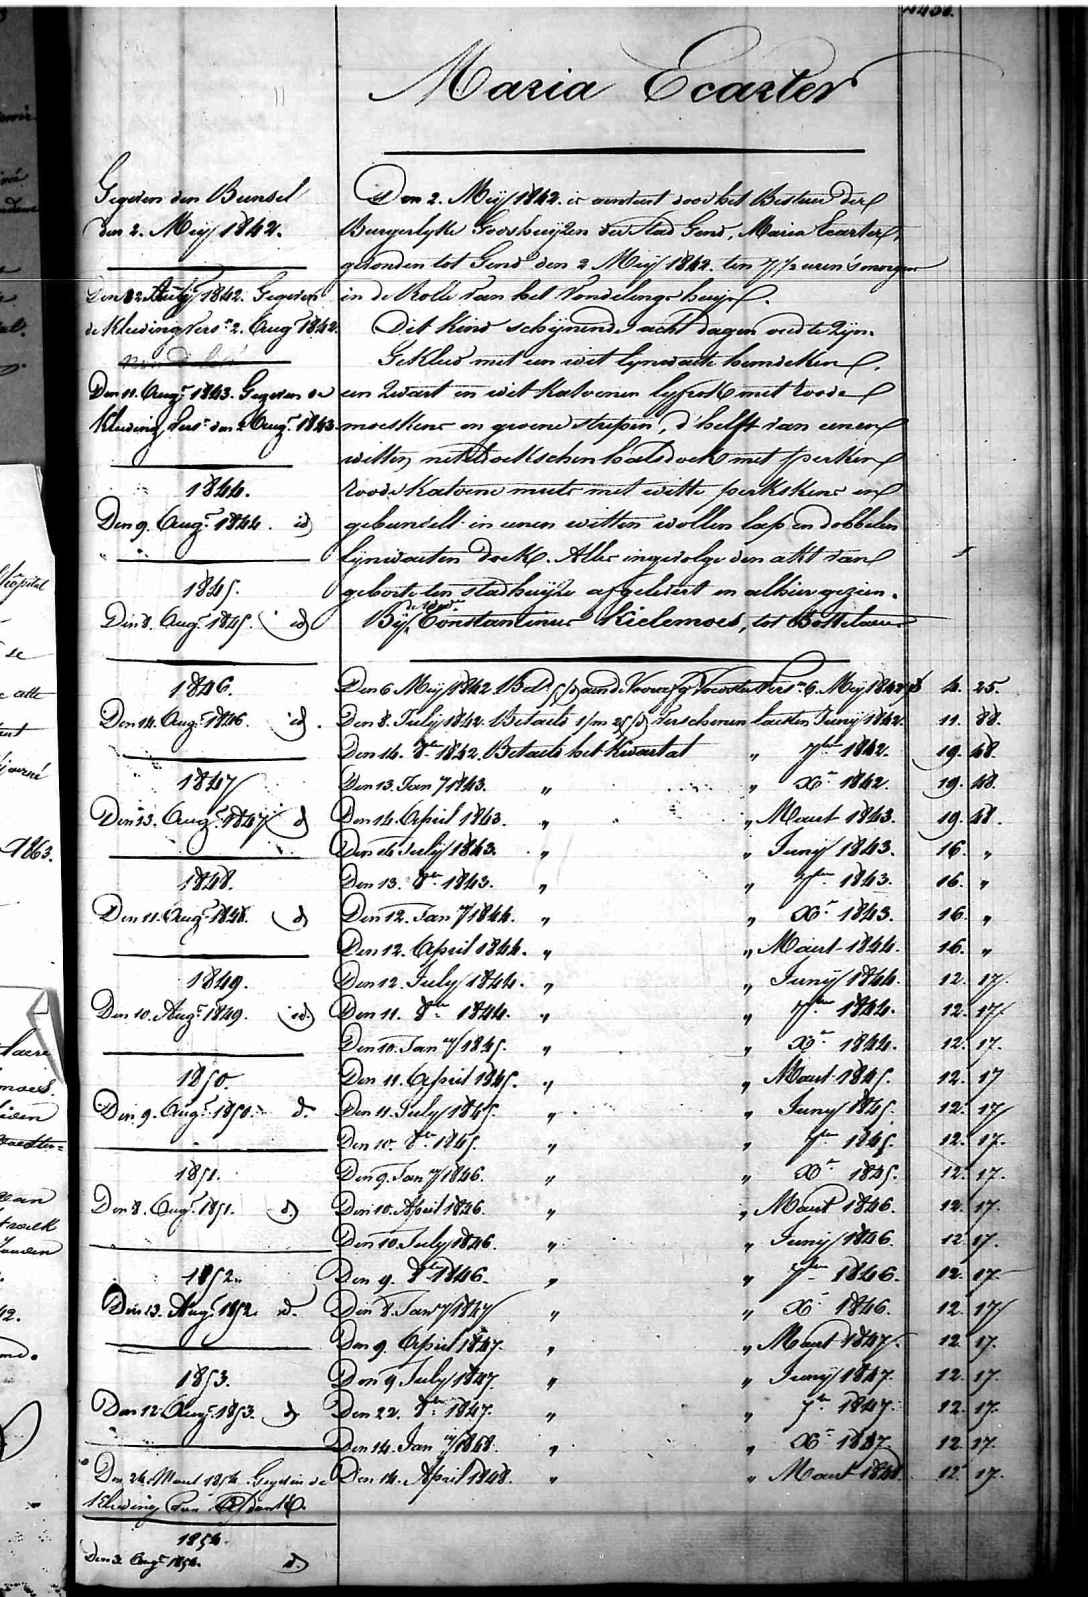 Maria Ecarter
Gegeven den Bunsel
den 2. Meij 1842.
Den 12 July 1842. Gegeven
de Kleding vers. 2. Augt 1842.
Den 11. Augt 1843. Gegeven de
Kleding vers. den 2 Augt 1843
1844.
Den 9. Augt 1844. id
1845.
Den 8. Augt 1845. id
1846.
Den 14. Augt 1846. id.
1847
Den 23. Augt 1847 d
1848.
Den 11. Augt 1848. d
1849.
Den 10. Augt 1849. id.
1850.
Den 9. Augt 1850. d.
1851.
Den 8. Augt 1851. d.
1852.
Den 13. Augt 1852. id.
1853.
Den 12 Augt 1853. d
Den 24 Maart 1854 Gegeven de
Kleding van
1854.
Den 3 Augt 1854. d.
Den 2. Meij 1842. is aenveert door het Bestuer der
Burgerlyke Godshuijzen der stad Gend, Maria Ecarter,
gevonden tot Gend den 2 Meij 1842. ten 7 1/2 uren 's morgens
in de Rolle van het Vondelings huijs.
Dit Kind schijnende acht dagen oud te zijn.
Gekleed met een wit lijnwaete hemdeken,
een zwart en wit katoenen lyfrok met roode
moeskens en groene strepen, d'helft van eenen
witten neteldoekschen halsdoek met perken
roode katoene muts met witte perkskens en
gebundelt in eenen witten wollen lap en dobbelen
lijnwaeten doek. Alles ingevolge den akt van
geboorte ten stadhuijze afgeleverd en alhier gezien.
Bij de wede Constantinus Kielemoes, tot Bottelaere
Den 6 Meij 1842 Bet. aan de Voorzg Vers. 6. Meij 1842 4. 25.
Den 8. July 1842. Betaelt 1/m 25/d Verschenen laesten Junij 1842. 11. 88.
Den 14. 8br 1842. Betaelt het Kwartal „ 7br 1842. 19. 48.
Den 13. Jany 1843. „ „ Xr 1842. 19. 48.
Den 14. April 1843. „ „ Maart 1843. 19. 48.
Den 14 July 1843. „ „ Junij 1843. 16. „
Den 13. 8br 1843. „ „ 7br 1843. 16. „
Den 12. Jany 1844. „ „ Xr 1843. 16. „
Den 12. April 1844. „ „ Maert 1844. 16. „
Den 12. July 1844. „ „ Junij 1844. 12. 17.
Den 11. 8br 1844. „ „ 7br 1844. 12. 17.
Den 10. Jany 1845. „ „ Xr 1844. 12. 17.
Den 11. April 1845. „ „ Maart 1845. 12. 17
Den 11. July 1845. „ „ Juny 1845. 12. 17
Den 10. 8br 1845. „ „ 7br 1845. 12. 17.
Den 9. Jany 1846. „ „ Xr 1845. 12. 17.
Den 10. April 1846. „ „ Maart 1846. 12. 17.
Den 10. July 1846. „ „ Junij 1846. 12 17.
Den 9. 8br 1846. „ „ 7br 1846. 12. 17.
Den 8. Jany 1847 „ „ Xr 1846. 12. 17
Den 9. April 1847. „ „ Maart 1847. 12 17.
Den 9 July 1847. „ „ Junij 1847. 12. 17.
Den 22. 8br 1847. „ „ 7br 1847. 12. 17.
Den 14. Jany 1848. „ „ Xr 1847 12. 17.
Den 14. April 1848. „ „ Maart 1848 12. 17.